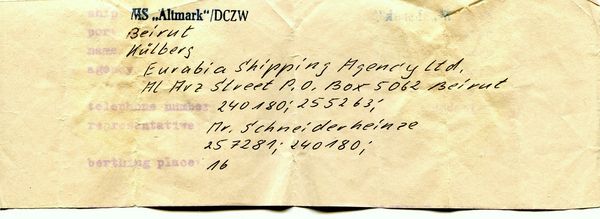 ship MS „Altmark“/DCZW
port Beirut
name Külberg
agency Eurabia Shipping Agency Ltd.
Al Arz Street P.O. Box 5062 Beirut
telephone number 240180; 255263;
representative Mr. Schneiderheinze
257281; 240180;
berthing place 16